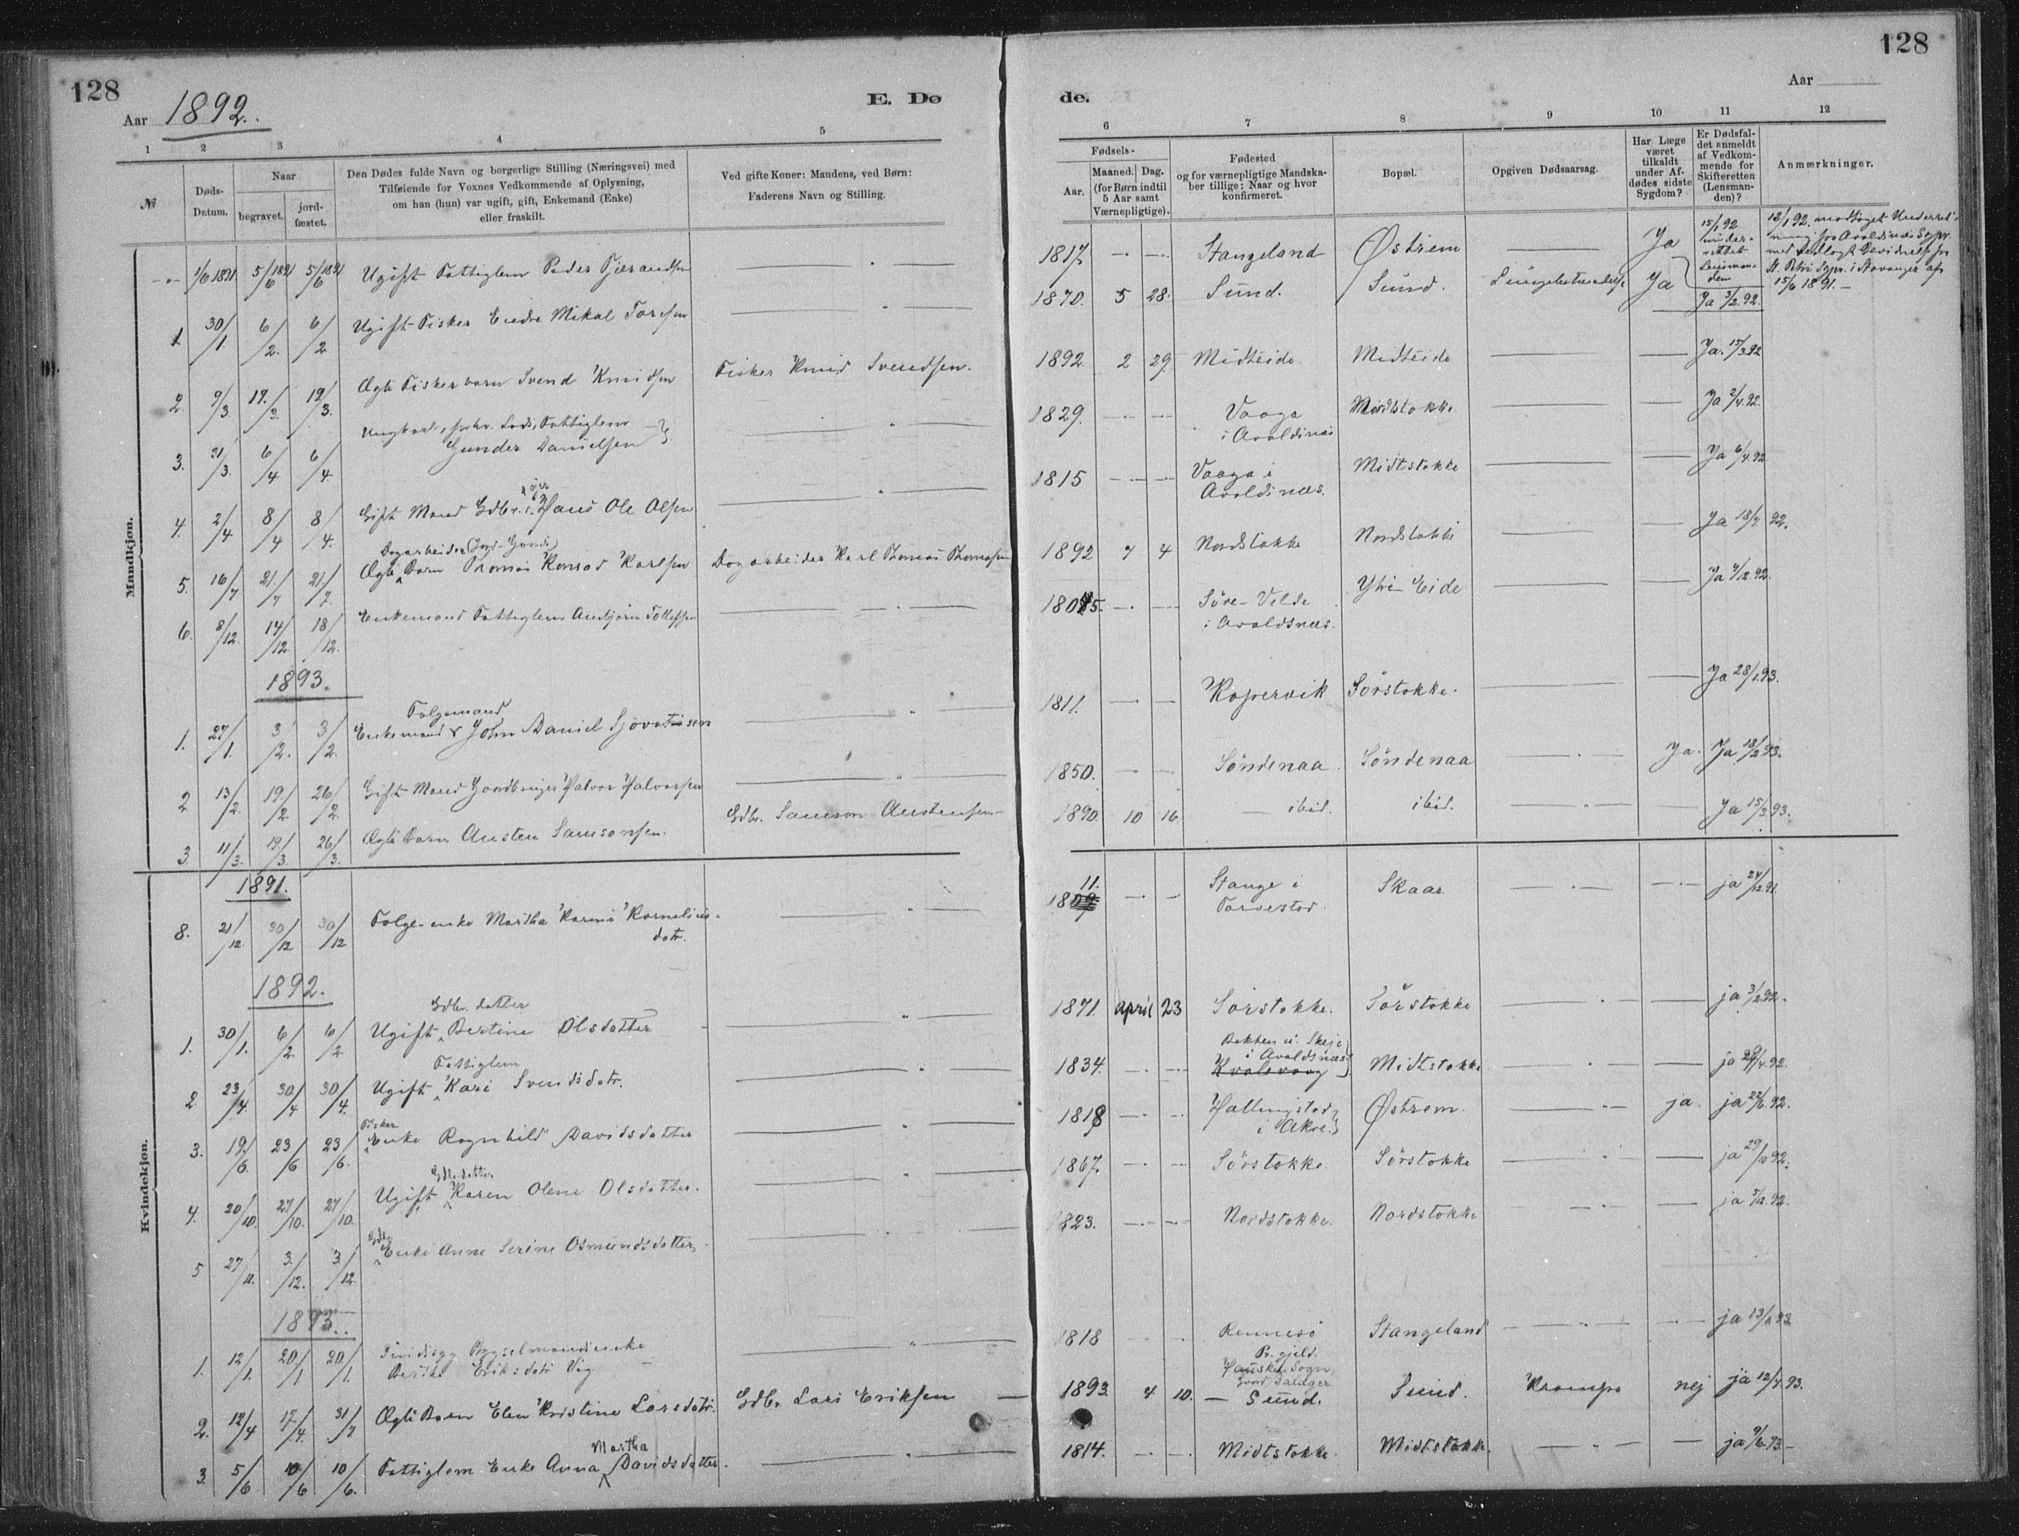 128
128
Aar 1892.
E. Dø
de.
Aar
1
2
3
4
5
6
7
8
9
10
11
12
№
Døds-
Datum.
Naar
begravet.
jord-
fæstet.
Den Dødes fulde Navn og borgerlige Stilling (Næringsvei) med
Tilføiende for Voxnes Vedkommende af Oplysning,
om han (hun) var ugift, gift, Enkemand (Enke)
eller fraskilt.
Ved gifte Koner: Mandens, ved Børn:
Faderens Navn og Stilling.
Fødsels-
Aar.
Maaned.
Dag.
(for Børn indtil
5 Aar samt
Værnepligtige).
Fødested
og for værnepligtige Mandska-
ber tillige: Naar og hvor
konfirmeret.
Bopæl.
Opgiven Dødsaarsag.
Har Læge
været
tilkaldt
under Af-
dødes sidste
Sygdom?
Er Dødsfal-
det anmeldt
af Vedkom-
mende for
Skifteretten
(Lensman-
den)?
Anmærkninger.
Mandkjøn.
1/6 1891 5/6 1891 5/6 1891 Ugift Fattiglem Peder 1817 Stangeland Østrem Ja 15/1 92 under-
rettet
Lensman-
den
12/1 92. modtaget Underret-
ning fra Avaldsnæs Sgpr.
15/6 1891.
1. 30/1 6/2. 6/2 Ugift Fisker Endre Mikal Toresen 1870. 5 28. Sund. Sund. Lungebetændelse Ja Ja 3/2.92.
2. 9/3 19./3. 19/3. Ægte Fisker barn Svend Knudsen Fisker Knud Svendsen. 1892. 2 29. Midteide. Midteide Ja. 15/3 92
3. 31/3. 6/4 6/4 Lods, Fattiglem
Gunder Danielsen 1829. Vaaga
i Avaldsnæs Midtstokke Ja 2/4.92.
4. 2/4 8/4 8/4. Gift Mand Gdbr. Hans Ole Olsen 1815 Vaaga i
Avaldsnæs. Midtstokke Ja 6/4.92
5. 16/7 21./7 21/7. Dagarbeider
Ægte Barn Thomas Konrad Karlsen Dagarbeider Karl Thomas Thomasen 1892 7 4 Nordstokke Nordstokke Ja 18/7. 92.
6. 8/12. 14/12. 18/12. Enkemand Fattiglem Anbjørn Tollefsen 1805. Søre-Velde
i Avaldsnæs. Ytre-Eide Ja 9/12.92.
1893.
1. 27/1. 3/2. 3/2. Folgemand
Enkemand John Daniel 1811. Kopervik Sørstokke. Ja 28/1.93.
2 13/2. 19/2. 26/2. Gift Mand Gaardbruger Halvor Halvorsen 1850. Søndenaa. Søndenaa Ja. Ja 18/2 93.
3. 11/3. 19/3. 26/3. Ægte Barn Austen Samsonsen. Gdbr. Samson Austensen 1890. 10 16 ibid. ibid. Ja 15/3.93.
Kvindekjøn.
1891.
8. 21/12. 30/12 30/12. Folge-enke Martha Karine Kornelius-
datr. 11.
1809 Stange i
Torvestad. Skaar ja 24/12 91.
1892.
1. 30/1. 6/2. 6/2. Gdbr. datter
Ugift Bertine Olsdatter 1871. april 23 Sørstokke. Sørstokke ja 3/2.92.
2 23/4. 30/4 30/4. Fattiglem
Ugift Kari Svendsdatr. 1834. Bakken u. Skeje
i Avaldsnæs
Kvalavaag Midtstokke ja 29/4.92.
3. 19./6. 23/6 23/6. Fisker
Enke Ragnhild Davidsdatter 1818 Hallingstad
i Akre. Østrem. ja. ja 22/6.92.
4. 20/10. 27/10. 27/10. Gdbr.datter
Ugift Karen Olene Olsdatter. 1867. Sørstokke. Sørstokke ja 29/10 92.
5 27/11. 3./12. 3./12. Enke Anne Serine Osmundsdatter. 1823. Nordstokke. Nordstokke ja 5/12.92.
1893.
1. 12/1. 20./1 20./1.
Berthe Eriksdatr Vig 1818 Rennesø
Pr.gjeld. Stangeland ja 13/1 93
2. 12/4 17./4. 31/7 Ægte Barn Elen Kristine Larsdatr. Gdbr. Lars Eriksen 1893. 4 10. Sund. Sund. Krampe nej ja 12/4.93.
3. 5/6 10/6 10/6. Fattiglem Enke Anna Martha Davidsdatter. 1814. Midtstokke. Midtstokke. ja 9/6.93